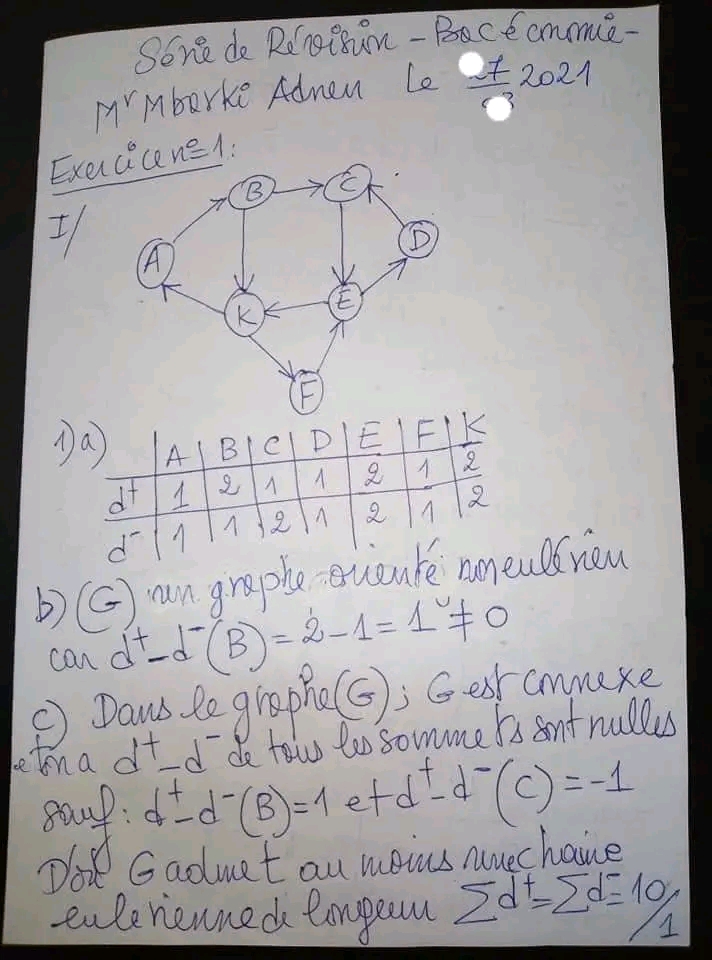 Série de Révision - Bac économie -
Mr Mbarki Adnen Le 17/03 2021
Exercice n°=1:
I/
B C
A D
K E
F
1) a) A B C D E F K
d+ 1 2 1 1 2 1 2
d- 1 1 2 1 2 1 2
b) (G) un graphe orienté non eulérien
car d+_d-(B) = 2-1 = 1 ≠ 0
c) Dans le graphe (G) ; G est connexe
et on a d+_d- de tous les sommets sont nulles
sauf : d+_d-(B)=1 et d+_d-(C) = -1
D'où G admet au moins une chaine
eulerienne de longeur Σd+=Σd-=10
/1